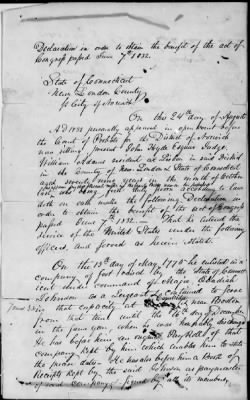 Declaration in order to obtain the benefit of the act of
Congress passed June 7th 1832.
State of Connecticut
New London County
& City of Norwich
On this 24th day of August
AD 1832 personally appeared in open court before
the Court of Probate for the District of Norwich
now sitting, present John Hyde Esquire Judge,
William Adams resident at Lisbon in said District
in the County of New London & State of Connecticut
aged seventy nine years in the month of October
last, who being first duly sworn according to law
doth on oath make the following Declaration in
order to obtain the benefit of the act of Congress
passed June 7th 1832. That he entered the
service of the United States under the following
officers, and served as herein stated.
On the 13th day of May, 1775 he enlisted in a
company of foot raised by the State of Connecti
cut under command of Major Obadiah
Johnson as a Sergeant & continued to serve
in that capacity at near Boston
from that time until the 16th of December
in the same year, when he was honorably discharged
He has before him an original Payroll of that
company kept by him which enables him to state
the precise date. He has also before him a Book of
Receipts kept by the said Johnson as paymaster
of said Company signed by all its members,